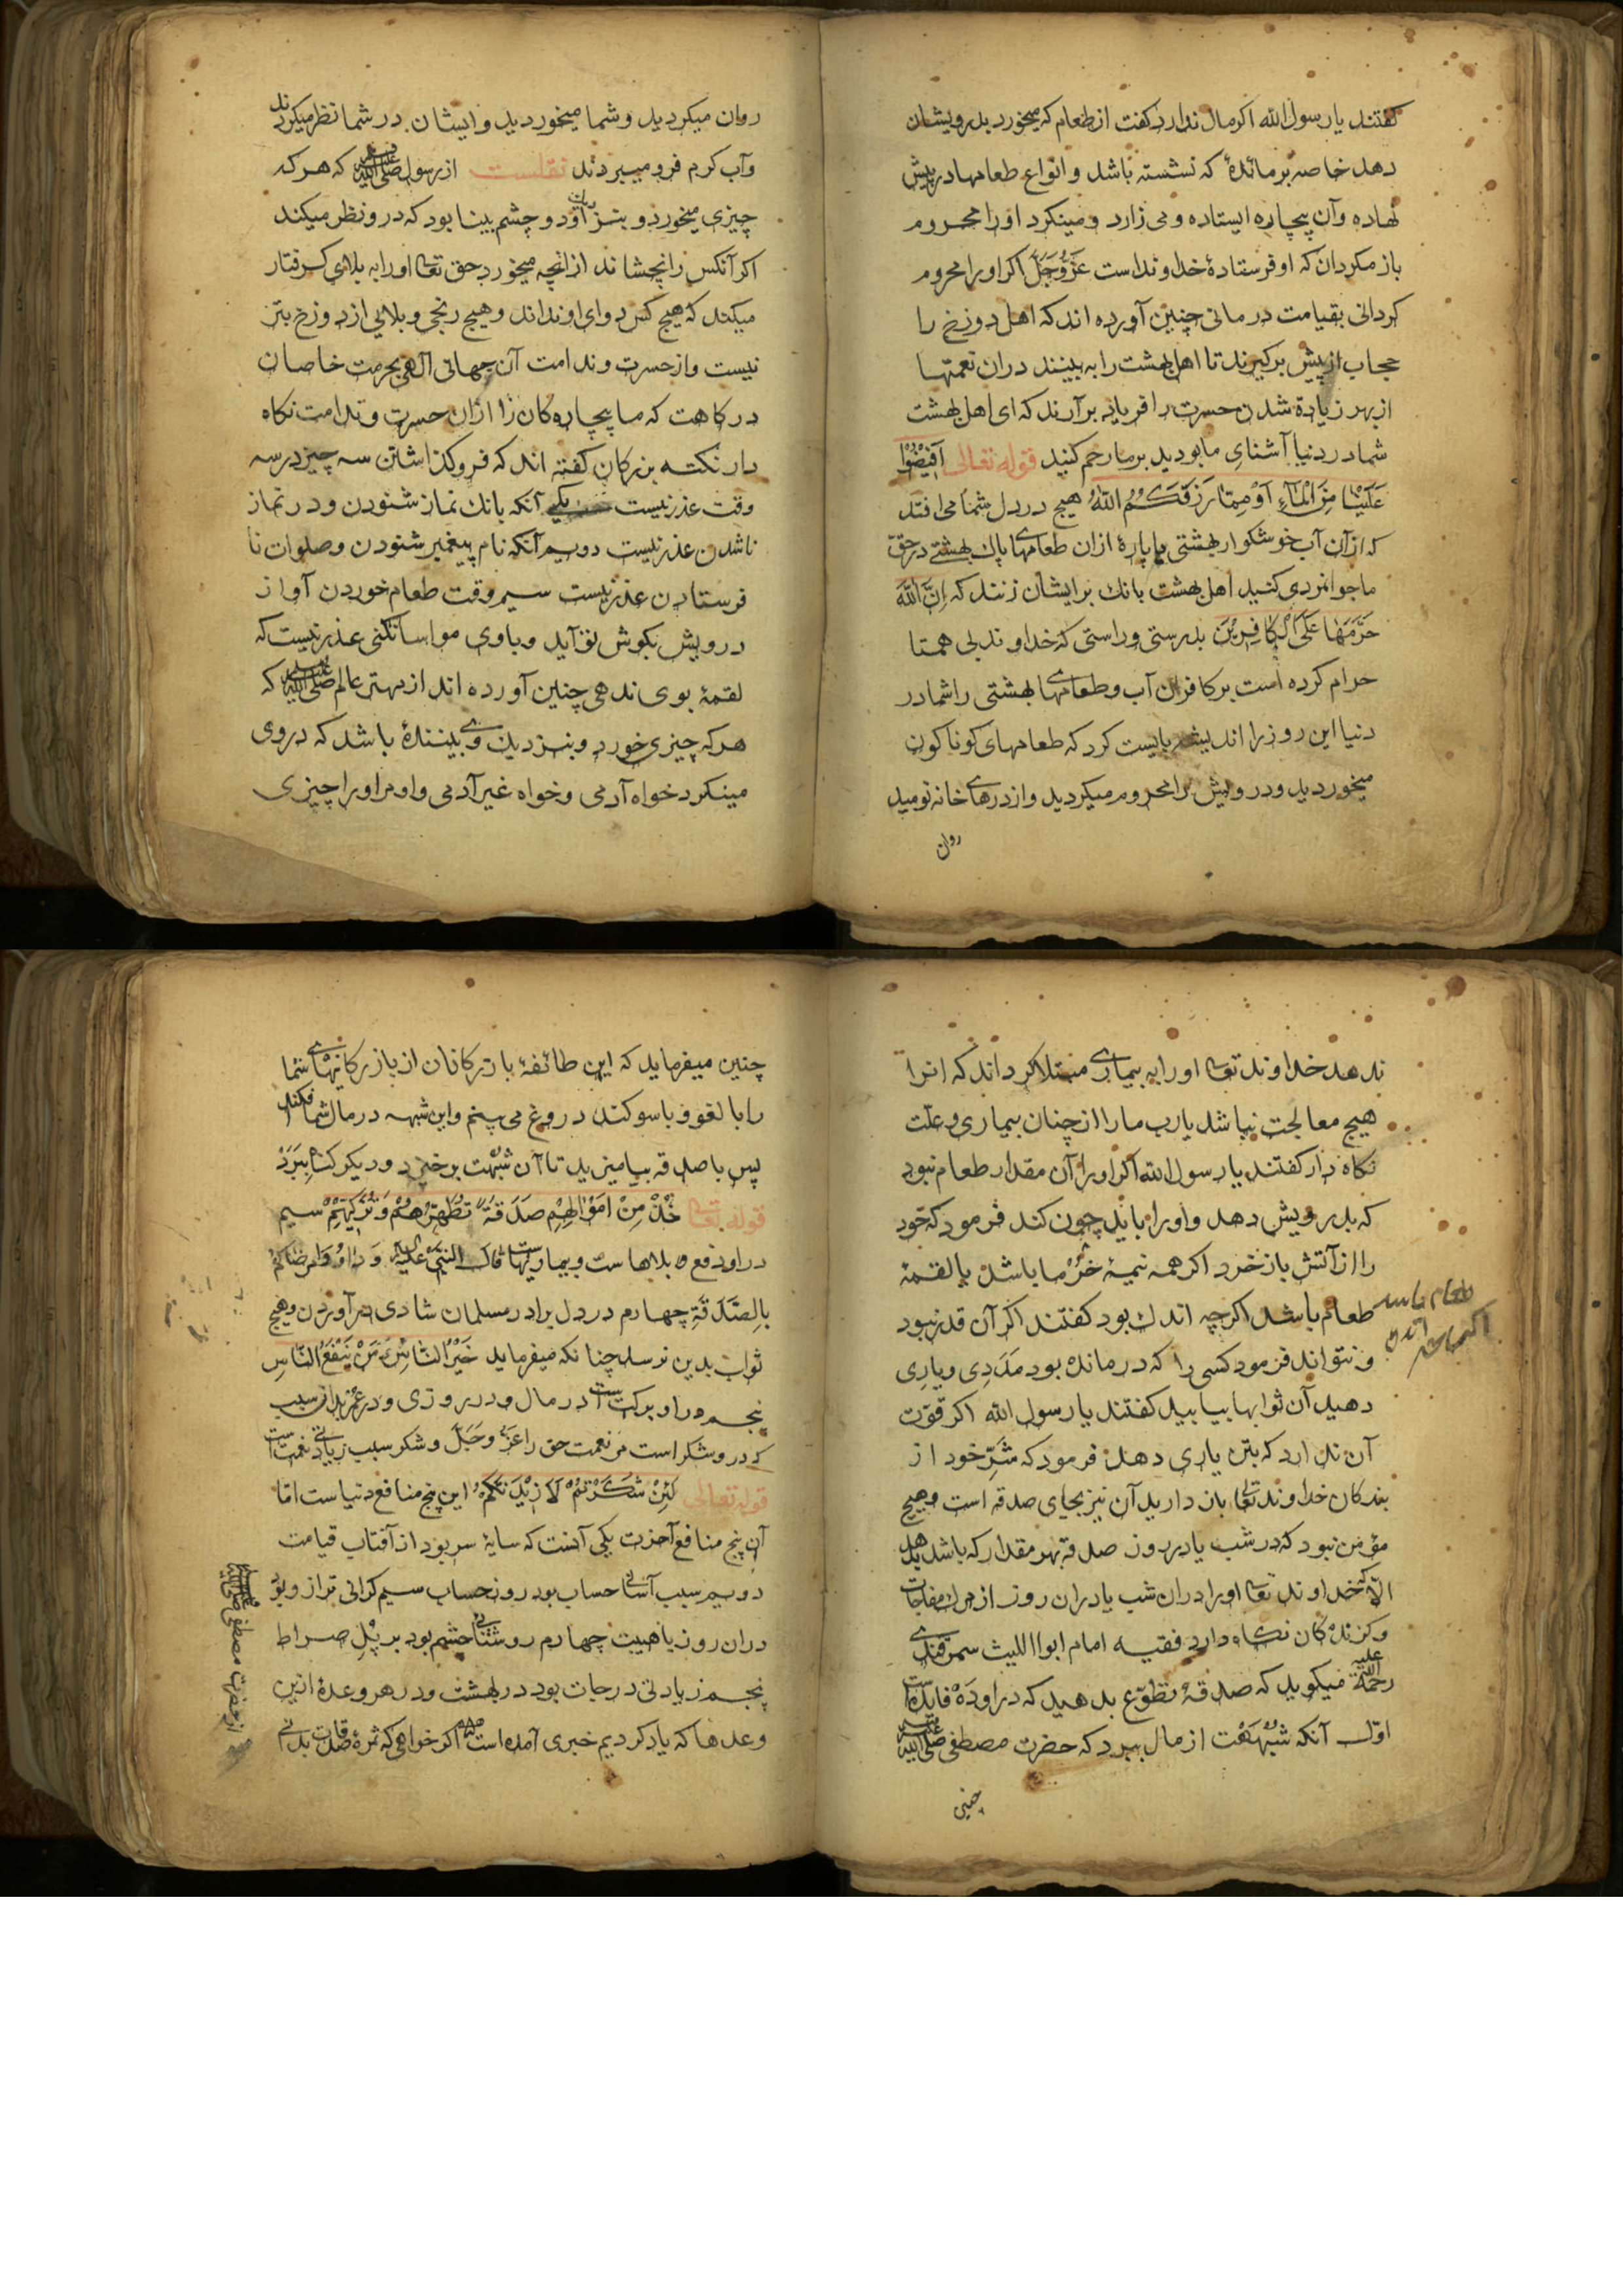 کفتند یا رسول الله اکر مال ندارد کفت از طعام که میخورد بدرویشان
دهد خاصه بر مائدهٔ که نشسته باشد و انواع طعامها در پیش
نهاده و آن بیچاره ایستاده و می زارد و مینکرد او را محروم
باز مکردان که او فرستادهٔ خداوند است عَزَّ وَجَلَّ اکر او را محروم
کردانی بقیامت درمانی چنین آورده اند که اهل دوزخ را
حجاب از پیش برکیرند تا اهل بهشت را به بینند در ان نعمتها
از بهر زیادة شدن حسرت را فریاد برآرند که ای اهل بهشت
شما در دنیا آشنایِ ما بودید بر ما رحم کنید قوله تعالی اَفِیْضُوْا
عَلَیْنَا مِنَ الْمَآءِ اَوْ مِمَّا رَزَقَکُمُ اللّٰهُ هیچ در دل شما می افتد
که از آن آب خوشکوار بهشتی یا پارهٔ ازان طعامهاے پاك بهشتے در حقّ
ما جوانمردی کنید اهل بهشت بانك بر ایشان زنند که اِنَّ اللّٰهَ
حَرَّمَهَا عَلَی الْکَافِرِیْنَ بدرستی و راستی که خداوند بی همتا
حرام کرده است بر کافران آب و طعامهاے بهشتی را شما در
دنیا این روز را اندیشه بایست کرد که طعامهای کوناکون
میخوردید و درویش را محروم میکردید و از درهاے خانه نومید
روان
روان میکردید و شما میخوردید و ایشان در شما نظر میکردند
و آب کرم فرو میبردند نقلست از رسول ﷺ که هر که
چیزی میخورد و بنزد او دو چشم بینا بود که درو نظر میکند
اکر آنکس را نچشاند از انچه میخورد حق تعالی او را به بلای کرفتار
میکند که هیچ کس دوای او نداند و هیچ رنجی و بلایی از دوزخ بتر
نیست و از حسرت و ندامت آن جهانی آلهی بحرمت خاصان
درکاهت که ما بیچاره کان را ازان حسرت و ندامت نکاه
دار نکته بزرکان کفته اند که فروکذاشتن سه چیز در سه
وقت عذر نیست یکی آنکه بانك نماز شنودن و در نماز
ناشدن عذر نیست دویم آنکه نام پیغمبر شنودن و صلوات نا
فرستادن عذر نیست سیم وقت طعام خوردن آواز
درویش بکوش تو آید و با وی مواسا نکنی عذر نیست که
لقمهٔ بوی ندهی چنین آورده اند از مهتر عالم ﷺ که
هر که چیزی خورد و بنزدیك وے بینندهٔ باشد که در وی
مینکرد خواه آدمی و خواه غیر آدمی و او مر او را چیزی
ندهد خداوند تعالی او را به بیمارے مبتلا کرداند که انرا
هیچ معالجت نباشد یارب ما را از چنان بیماری و علّت
نکاه دار کفتند یا رسول الله اکر او را آن مقدار طعام نبود
که بدرویش دهد و او را باید چون کند فرمود که خود
را از آتش باز خرد اکر همه نیمهٔ خرما باشد یا لقمهٔ
طعام باشد اکرچه اندك بود کفتند اکر آن قدر نبود
و نتواند فرمود کسی را که درمانده بود مَدَدِی و یارِی
دهید آن ثوابها بیابید کفتند یا رسول الله اکر قوّت
آن ندارد که بتن یاری دهد فرمود که شَرِّ خود از
بندکان خداوند تعالی باز دارید آن نیز بجای صدقه است و هیچ
مؤمن نبود که در شب یا در روز صدقه بهر مقدار که باشد بدهد
الّا که خداوند تعالی او را دران شب یا دران روز از مرك مفاجات
و کزندکان نکاه دارد فقیه امام ابوا اللیث سمرقندے
رحمة الله علیه میکوید که صدقهٔ تطوّع بدهید که در او دَه فایده است
اوّل آنکه شُبْهَت از مال ببرد که حضرت مصطفی ﷺ
چنین
چنین میفرماید که این طائفهٔ بازرکانان از بازرکانیهاے شما
را با لغو و با سوکند دروغ می بینم و این شبهه در مال شما افکند
پس با صدقه بیامیزید تا آن شُبْهَت برخیزد و دیکر کناه ببَرَدْ
قوله تعالی خُذْ مِنْ اَمْوَالِهِمْ صَدَقَةً تُطَهِّرُهُمْ وَتُزَکِّیْهِمْ سیم
در او دفع بلاهاست و بیماریهاست قال النبی علیه السلام وَدَاوُوْا مَرْضَاکُمْ
بِالصَّدَقَةِ چهارم در دل برادر مسلمان شادی درآوردن و هیچ
ثواب بدین نرسد چنانکه میفرماید خَیْرُ النَّاسِ مَنْ یَنْفَعُ النَّاسَ
پنجم در او برکت است در مال و در روزی و در عمر بدان سبب
که درو شکر است مر نعمت حق را عَزَّ وَجَلَّ و شکر سبب زیادتی نعمت است
قوله تعالی لَئِنْ شَکَرْتُمْ لَاَزِیْدَنَّکُمْ این پنج منافع دنیاست امّا
آن پنج منافع آخرت یکی آنست که سایهٔ سر بود از آفتاب قیامت
دویم سبب آسانی حساب بود روز حساب سیم کرانی ترازو بود
دران روز باهیبت چهارم روشنی چشم بود بر پُلِ صراط
پنجم زیادتی درجات بود در بهشت و در هر وعدهٔ ازین
وعدها که یاد کردیم خبری آمده است اکر خواهی که ثمرهٔ صدقات بدانے